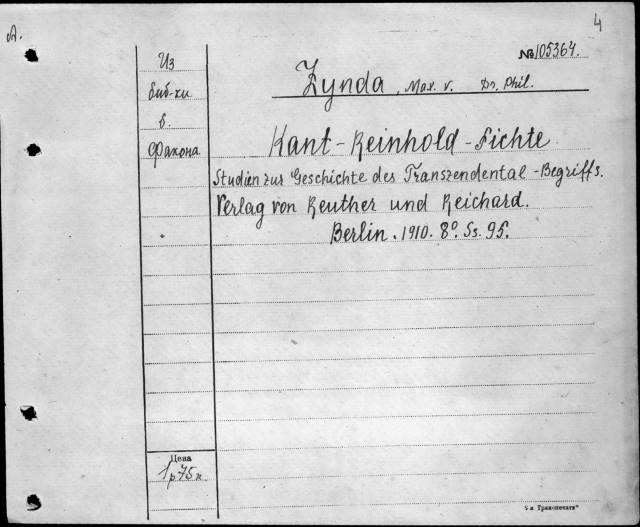 A.
4
№ 105364.
Из
биб-ки
б.
Фахона
Zynda, Max v. Dr. Phil.
Kant-Reinhold-Fichte
Studien zur Geschichte des Transzendental-Begriffs.
Verlag von Reuther und Reichard.
Berlin. 1910. 8º. Ss. 95.
Цена
1 р 75 к.